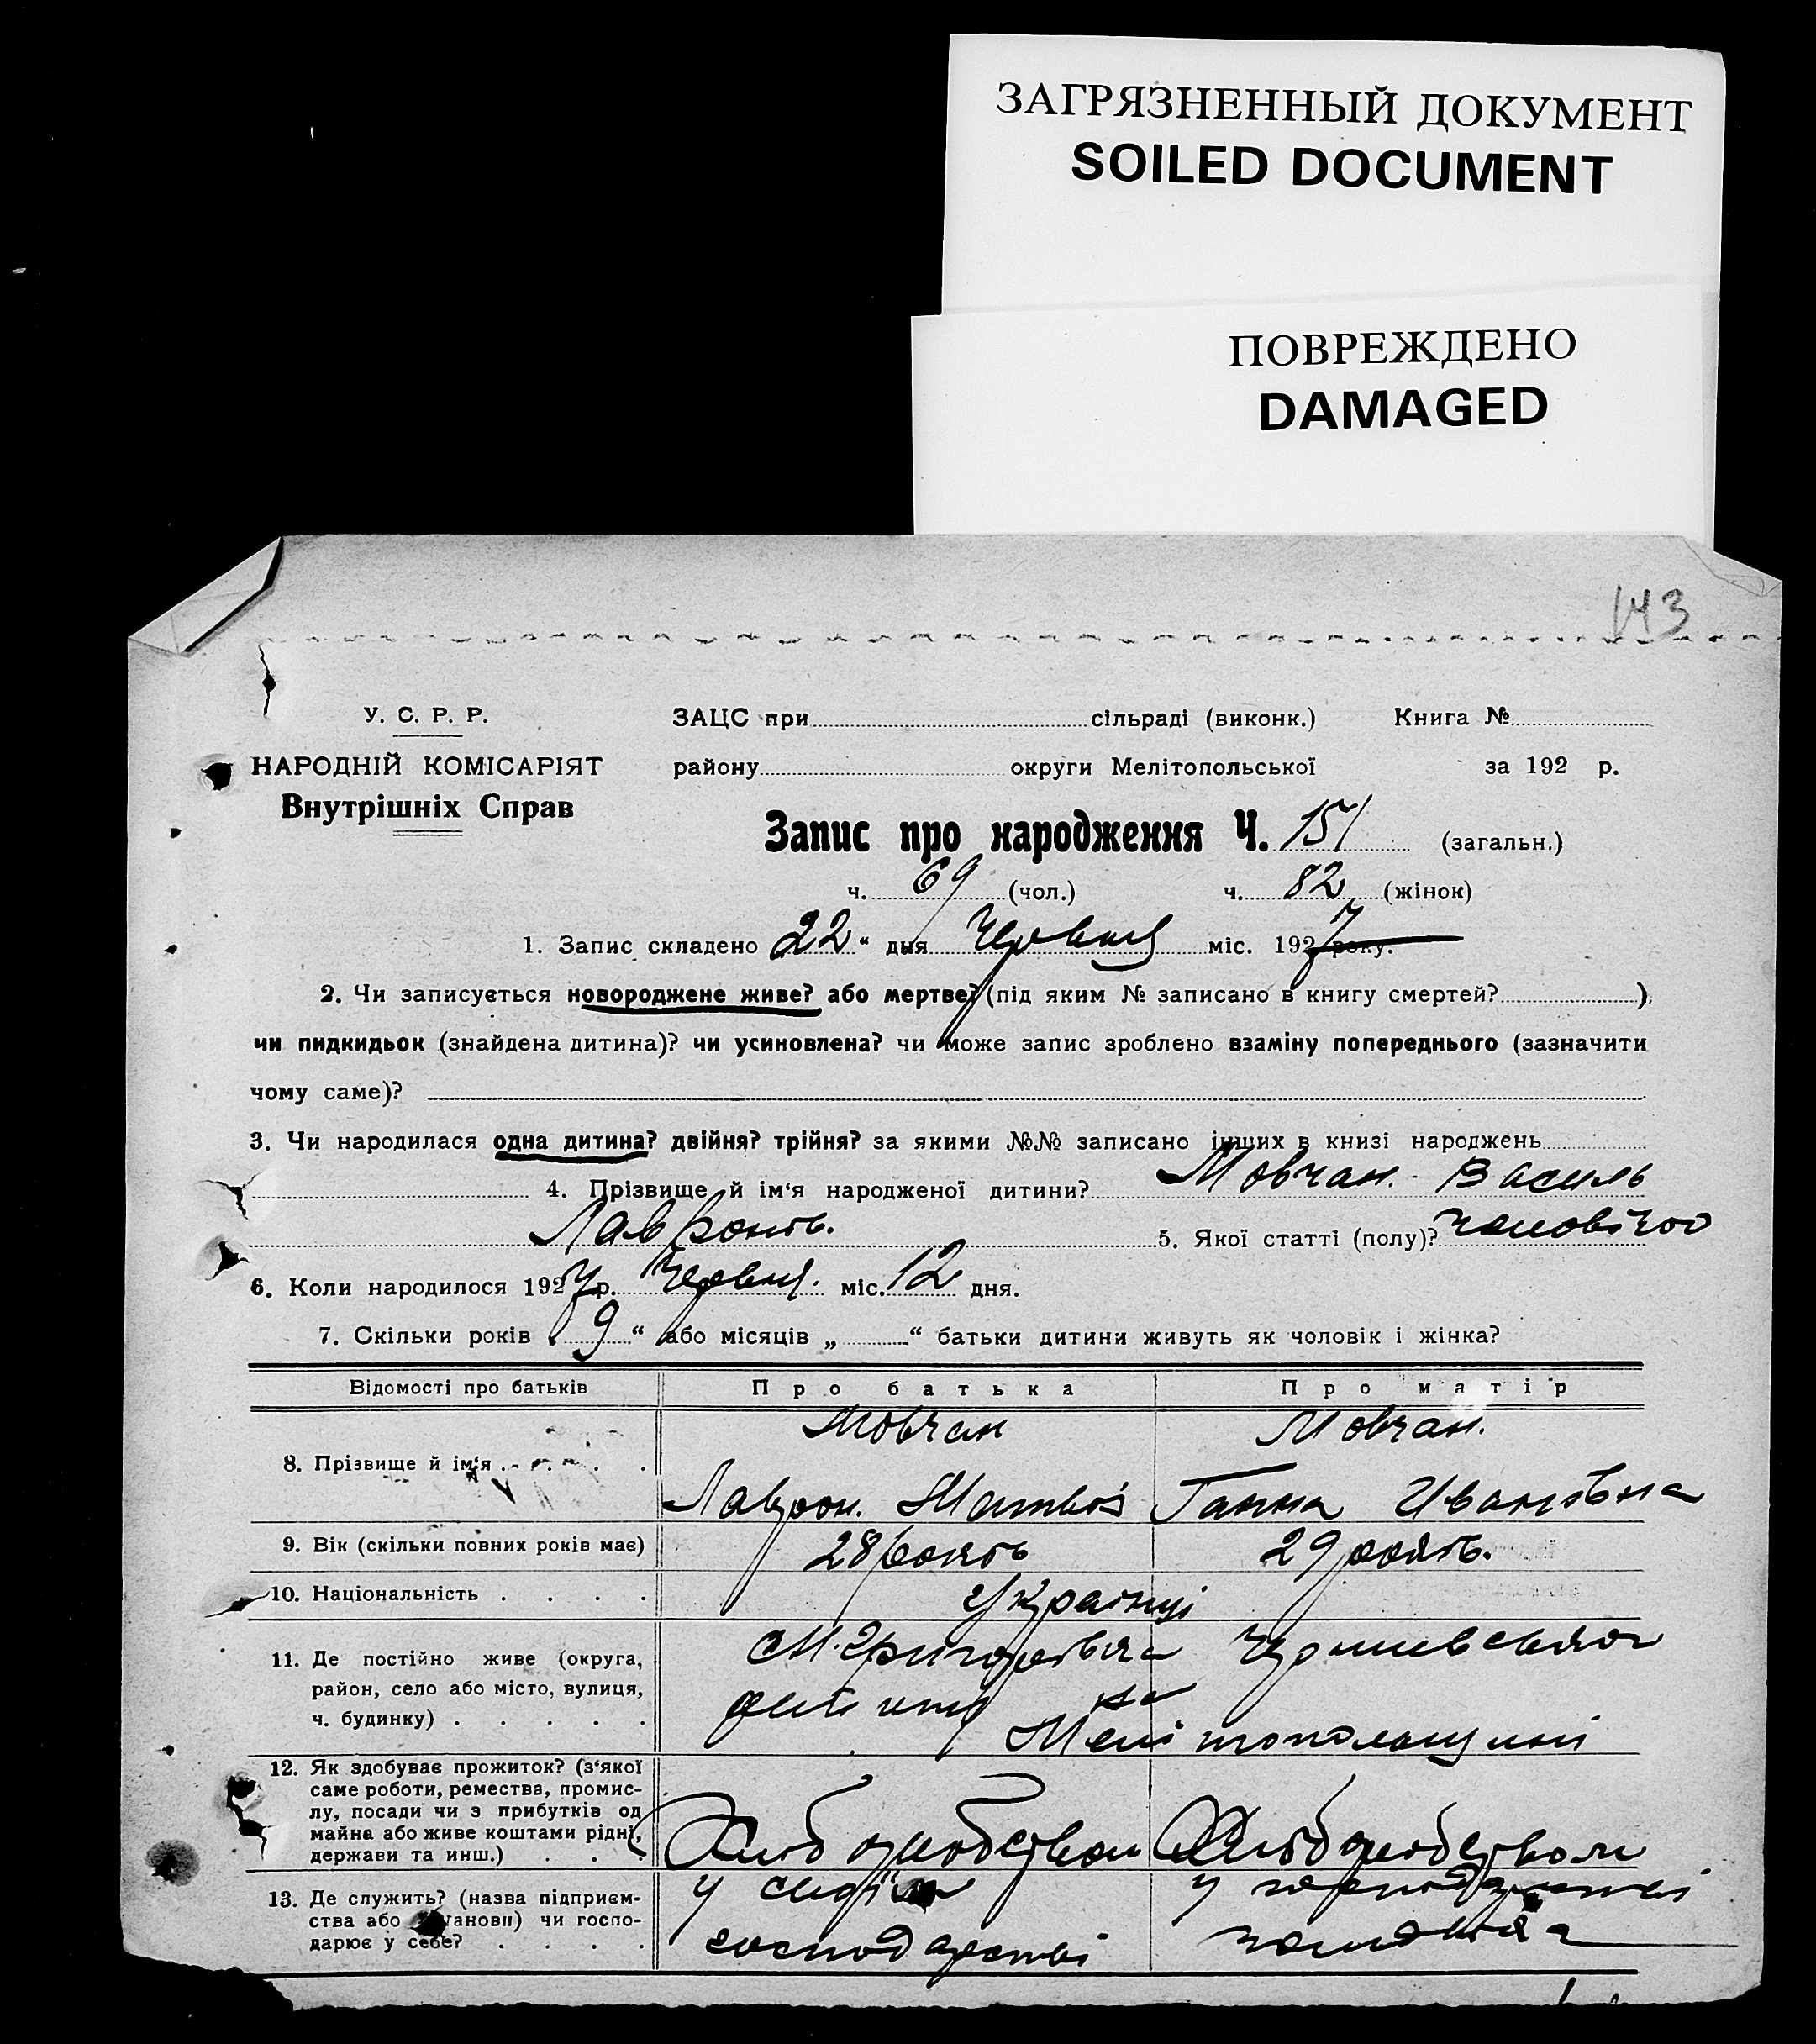 ЗАГРЯЗНЕННЫЙ ДОКУМЕНТ
SOILED DOCUMENT
ПОВРЕЖДЕНО
DAMAGED
143
У. С. Р. Р.
НАРОДНІЙ КОМІСАРІЯТ
Внутрішніх Справ
ЗАЦС при сільраді (виконк.) Книга №
району округи Мелітопольської за 192 р.
Запис про народження Ч. 151 (загальн.)
ч. 69 (чол.) ч. 82 (жінок)
1. Запис складено 22 " дня Червня міс. 1927 року.
2. Чи записується новороджене живе? або мертве? (під яким № записано в книгу смертей? )
чи пидкидьок (знайдена дитина)? чи усиновлена? чи може запис зроблено взаміну попереднього (зазначити
чому саме)?
3. Чи народилася одна дитина? двійня? трійня? за якими №№ записано інших в книзі народжень
4. Прізвище й ім'я народженої дитини? Мовчан. Василь
Лавронть. 5. Якої статті (полу)?
6. Коли народилося 1927 р. Червня. міс. 12 дня.
7. Скільки років „ 9 “ або місяців „ “ батьки дитини живуть як чоловік і жінка?
Відомості про батьків Про батька Про матір
8. Прізвище й ім'я . . . . . Мовчан Мовчан.
Лаврон. Матвів Ганна Ивановна
9. Вік (скільки повних років має) 28 29
10. Національність . . . . Українці
11. Де постійно живе (округа,
район, село або місто, вулиця,
ч. будинку) . . . . .
Мелітопольщині
12. Як здобуває прожиток? (з'якої
саме роботи, ремества, промис-
лу, посади чи з прибутків од
майна або живе коштами рідні,
держави та инш.) . . . Хлібробством Хлібробством
13. Де служить? (назва підприєм-
ства або установи) чи госпо-
дарює у себе? . . . . у своїм у господарстві
господарстві чоловіка